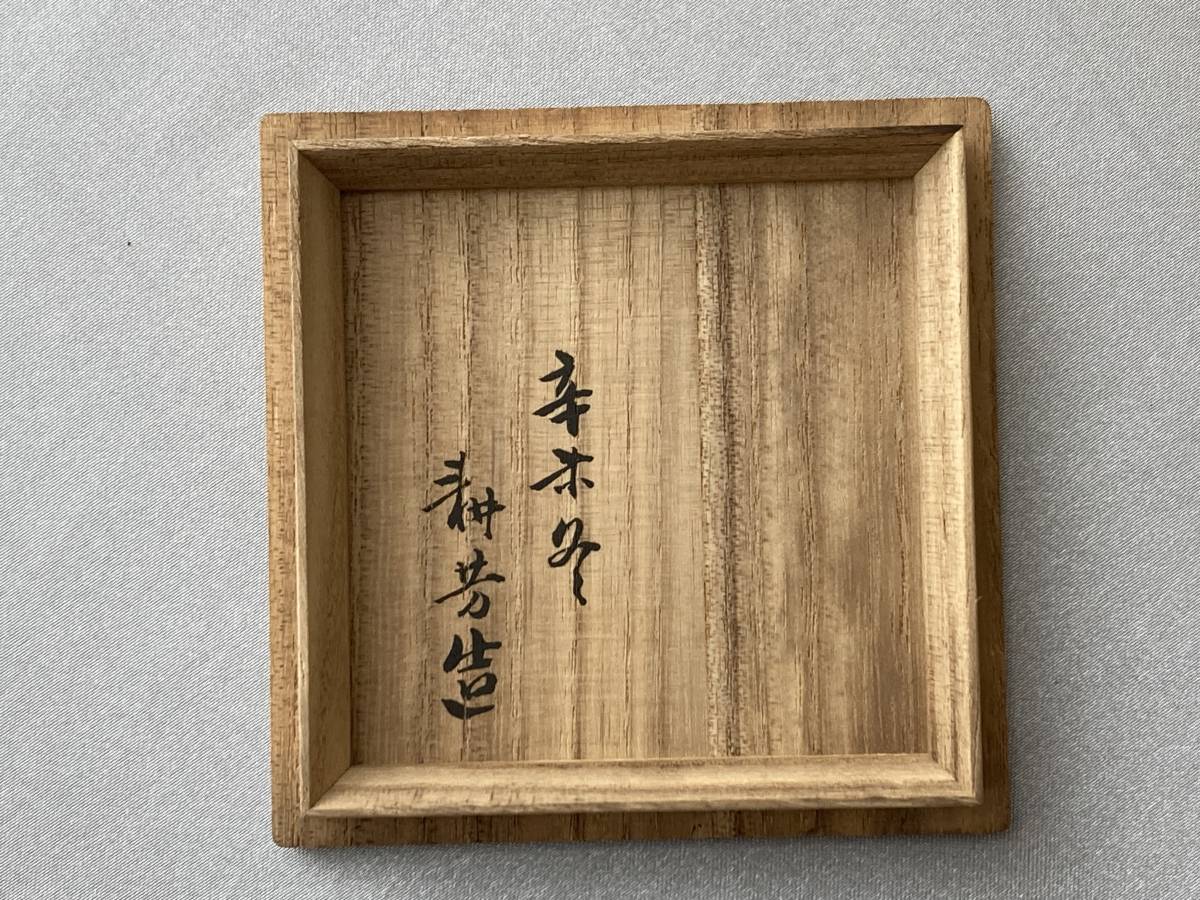 辛未冬
耕芳造